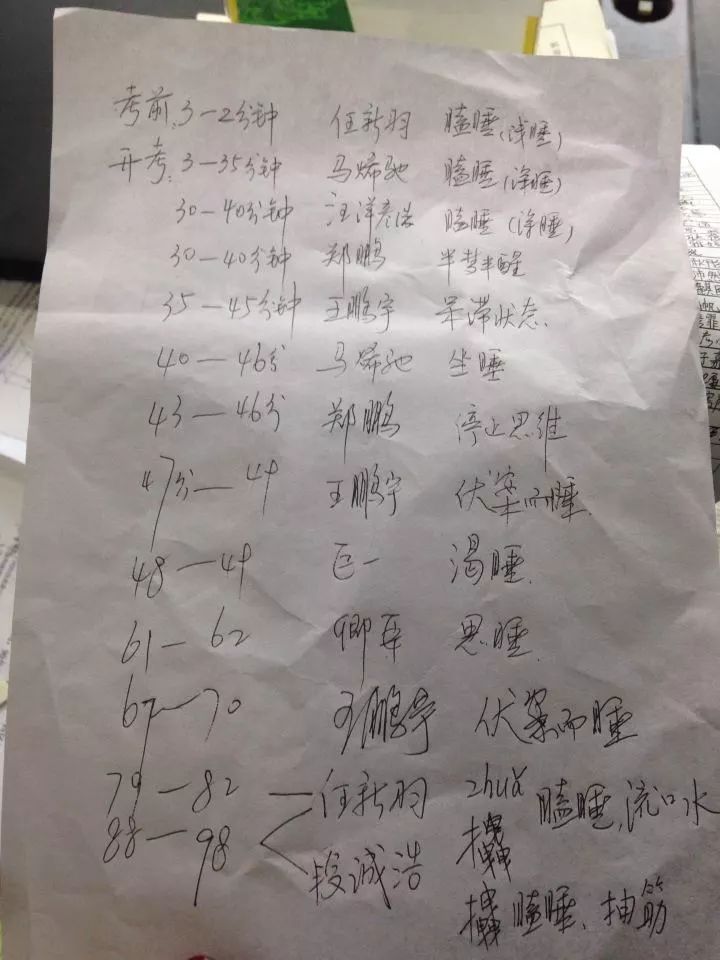 考前:3—2分钟 任新羽 瞌睡(浅睡)
开考:3—35分钟 马烯驰 瞌睡(深睡)
30—40分钟 汪洋彦浩 瞌睡(深睡)
30—40分钟 郑鹏 半梦半醒
35—45分钟 王鹏宇 呆滞状态.
40—46分 马烯驰 坐睡
43—46分 郑鹏 停止思维
47分—49 王鹏宇 伏案而睡
48—49 巨一 渴睡.
61—62 卿 思睡.
67—70 王鹏宇 伏案而睡
79—82 — 任新羽 zhuǎ 瞌睡,流口水
88—98 段诚浩 瞌睡、抽筋